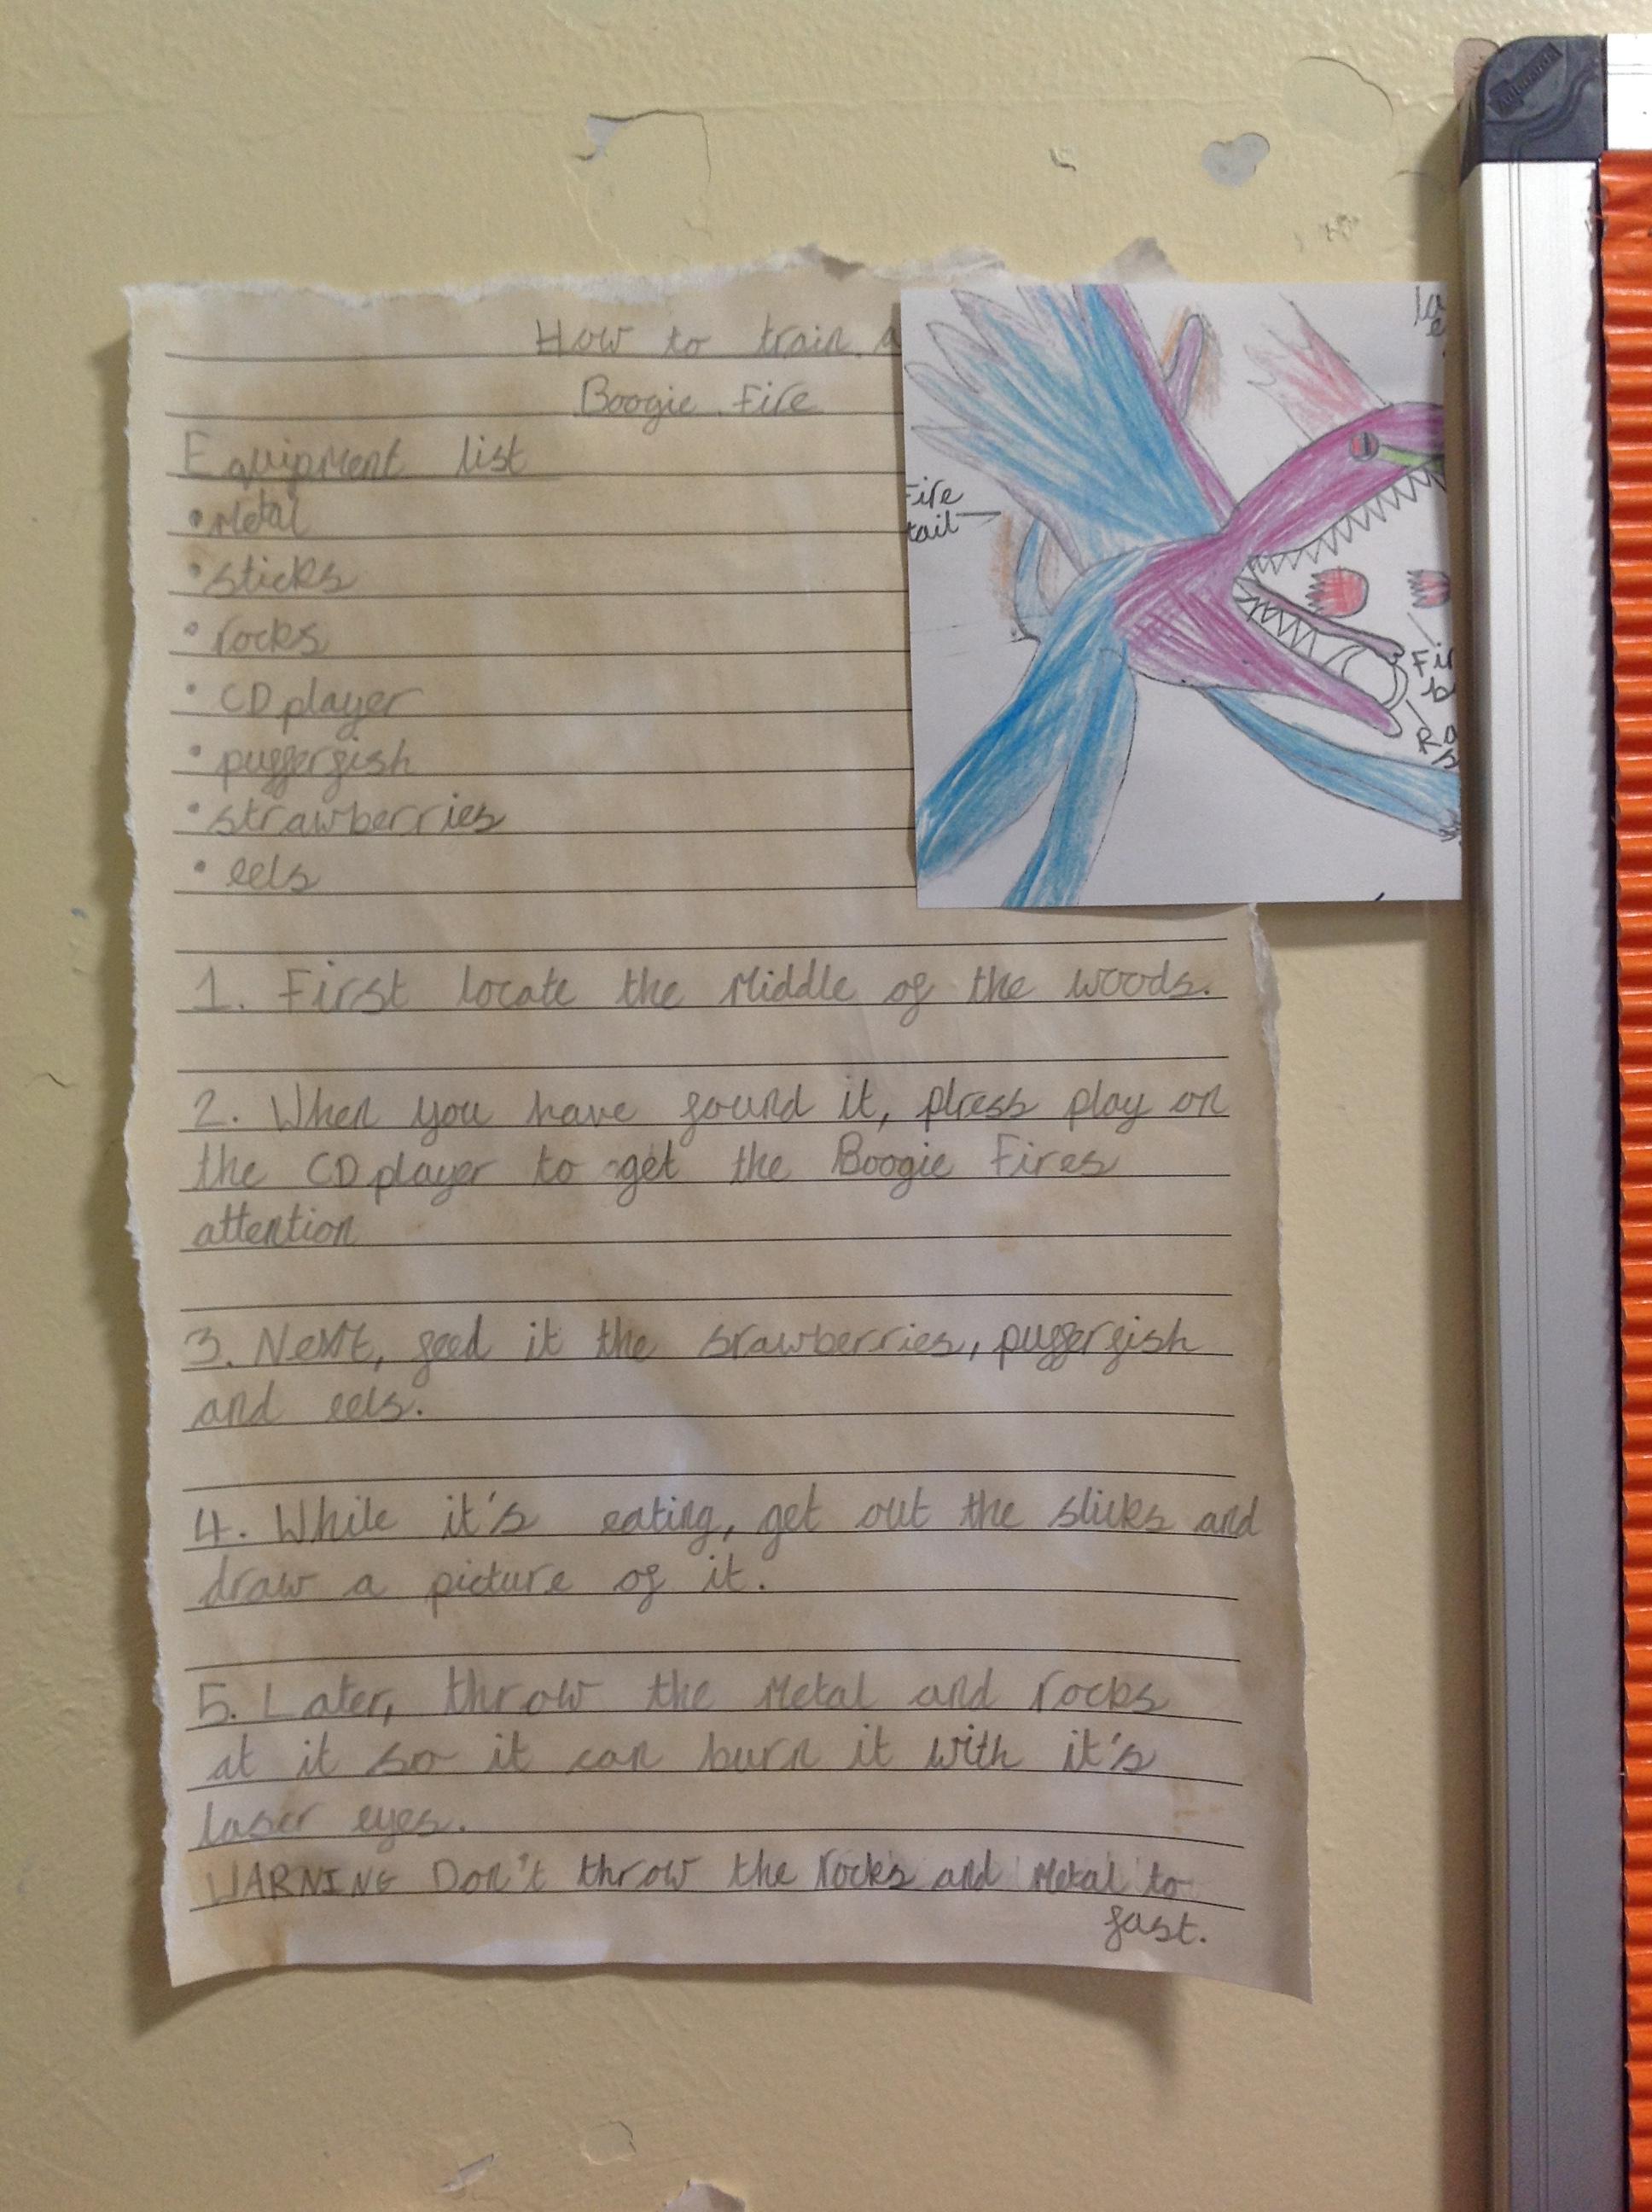 How to train a
Boogie Fire
Equipment list
• Metal
• sticks
• rocks
• CD player
• pufferfish
• strawberries
• eels
1. First locate the Middle of the woods.
2. When you have found it, press play on
the CD player to get the Boogie Fires
attention
3. Next, feed it the srawberries, pufferfish
and eels.
4. While it's eating, get out the sticks and
draw a picture of it.
5. Later, throw the Metal and rocks
at it so it can burn it with it's
laser eyes.
WARNING Don't throw the rocks and Metal to
fast.
Fire
tail